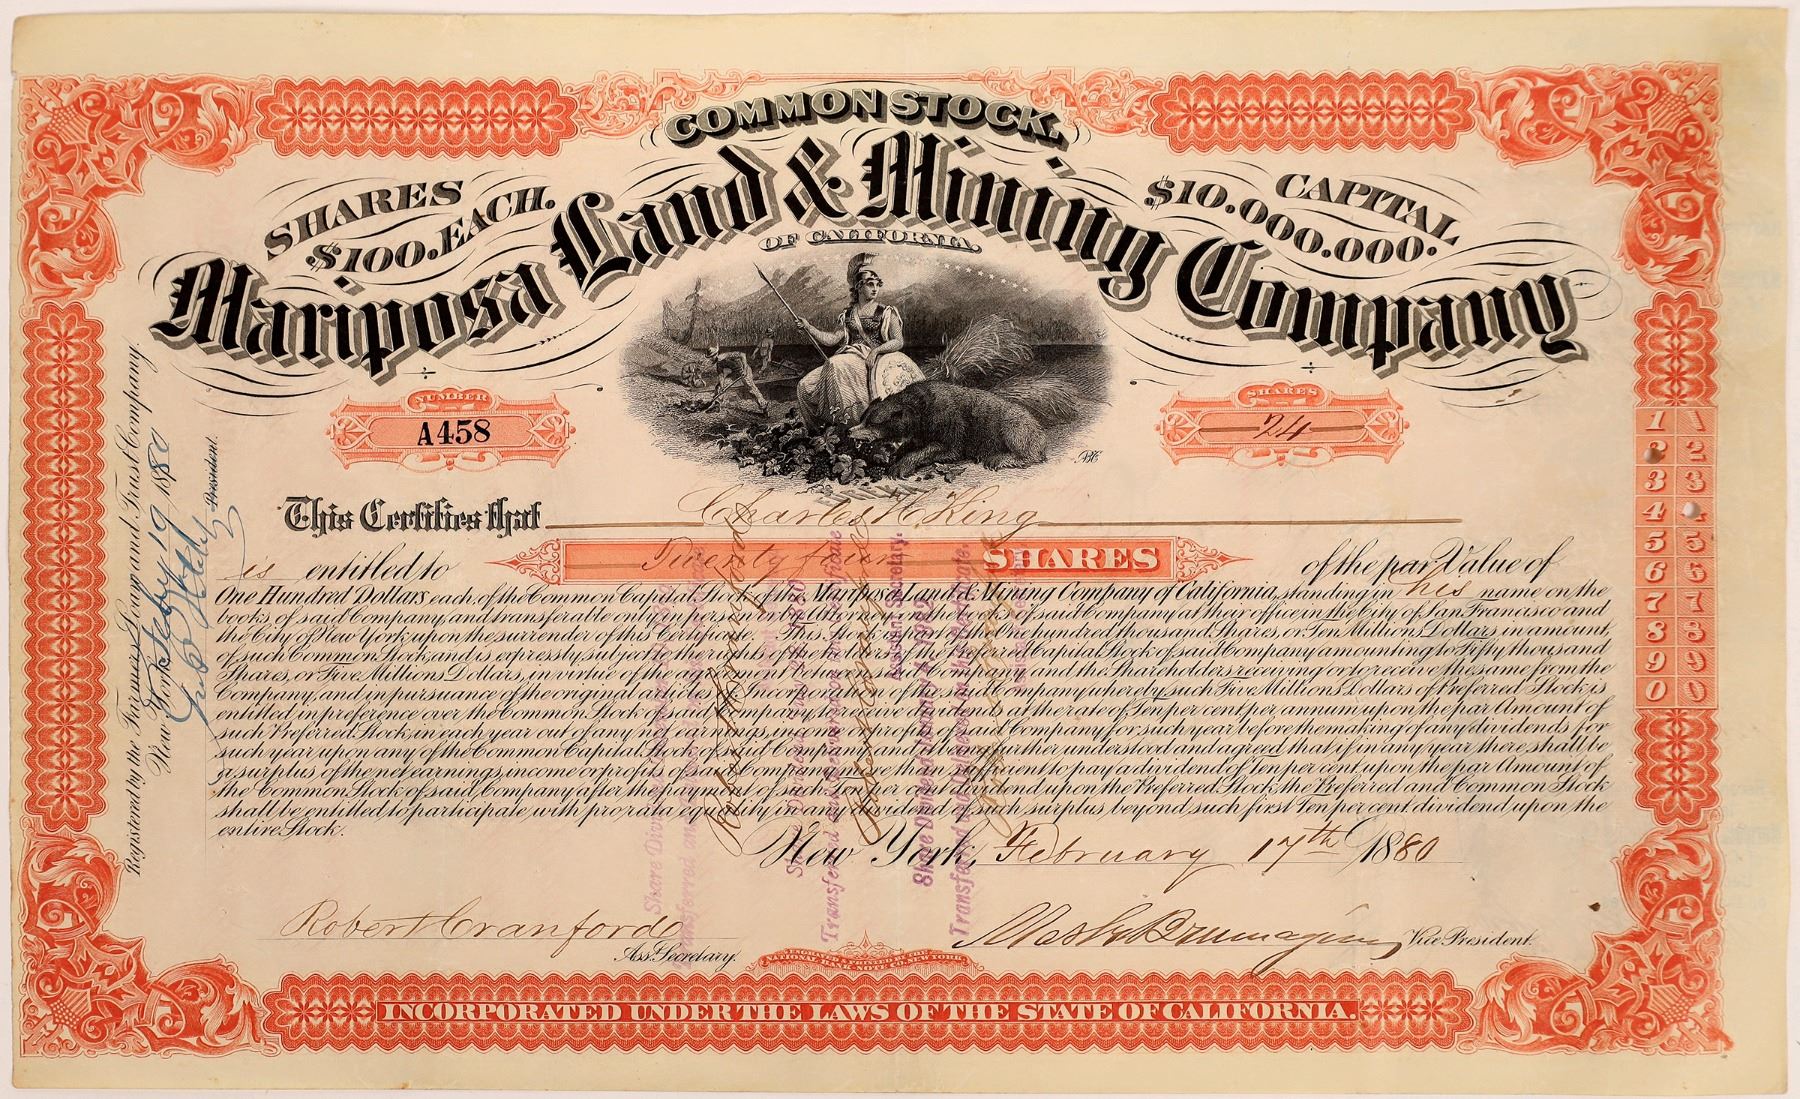 COMMON STOCK.
SHARES $100. EACH.
CAPITAL $10.000.000.
Mariposa Land & Mining Company
OF CALIFORNIA.
NUMBER
A458
SHARES
24
This Certifies that Charles H. King
is entitled to Twenty four SHARES of the par Value of
One Hundred Dollars each, of the Common Capital Stock, of the Mariposa Land & Mining Company of California, standing in his name on the
books of said Company, and transferable only in person or by Attorney on the books of said Company at their office in the City of San Francisco and
the City of New York, upon the surrender of this Certificate. This Stock is part of the One hundred thousand Shares, or Ten Millions Dollars, in amount,
of such Common Stock, and is expressly subject to the rights of the holders of the Preferred Capital Stock of said Company amounting to Fifty thousand
Shares, or Five Millions Dollars, in virtue of the agreement of Company and the Shareholders receiving or to receive the same from the
Company, and in pursuance of the original articles of Incorporation of the said Company whereby such Five Millions Dollars of Preferred Stock, is
entitled in preference over the Common Stock of said Company, to receive dividends at the rate of Ten per cent per annum upon the par Amount of
such Preferred Stock, in each year out of any net earnings, income or profits of said Company, for such year before the making of any dividends for
such year upon any of the Common Capital Stock of said Company and it being further understood and agreed that if in any year there shall be
a surplus of the net earnings, income or profits of said Company more than sufficient to pay a dividend of Ten per cent upon the par Amount of
the Common Stock of said Company after the payment of such Ten per cent dividend upon the Preferred Stock, the Preferred and Common Stock
shall be entitled to participate with pro rata equality in any dividend of such surplus beyond such first Ten per cent dividend upon the
entire Stock.
New York, February 17th 1880
Robert Cranford
Ass. Secretary.
Vice President.
NATIONAL BANK NOTE CO. NEW YORK
INCORPORATED UNDER THE LAWS OF THE STATE OF CALIFORNIA.
Registered by the Farmers Loan and Trust Company.
New York Feby 19 1880
President.
Assistant Secretary.
1 1
2 2
3 3
4 4
5 5
6 6
7 7
8 8
9 9
0 0